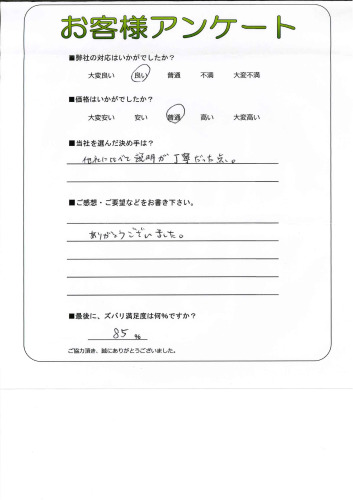 お客様アンケート
■弊社の対応はいかがでしたか？
大変良い 良い 普通 不満 大変不満
■価格はいかがでしたか？
大変安い 安い 普通 高い 大変高い
■当社を選んだ決め手は？
他社に比べて説明が丁寧だった点。
■ご感想・ご要望などをお書き下さい。
ありがとうございました。
■最後に、ズバリ満足度は何%ですか？
85 %
ご協力頂き、誠にありがとうございました。